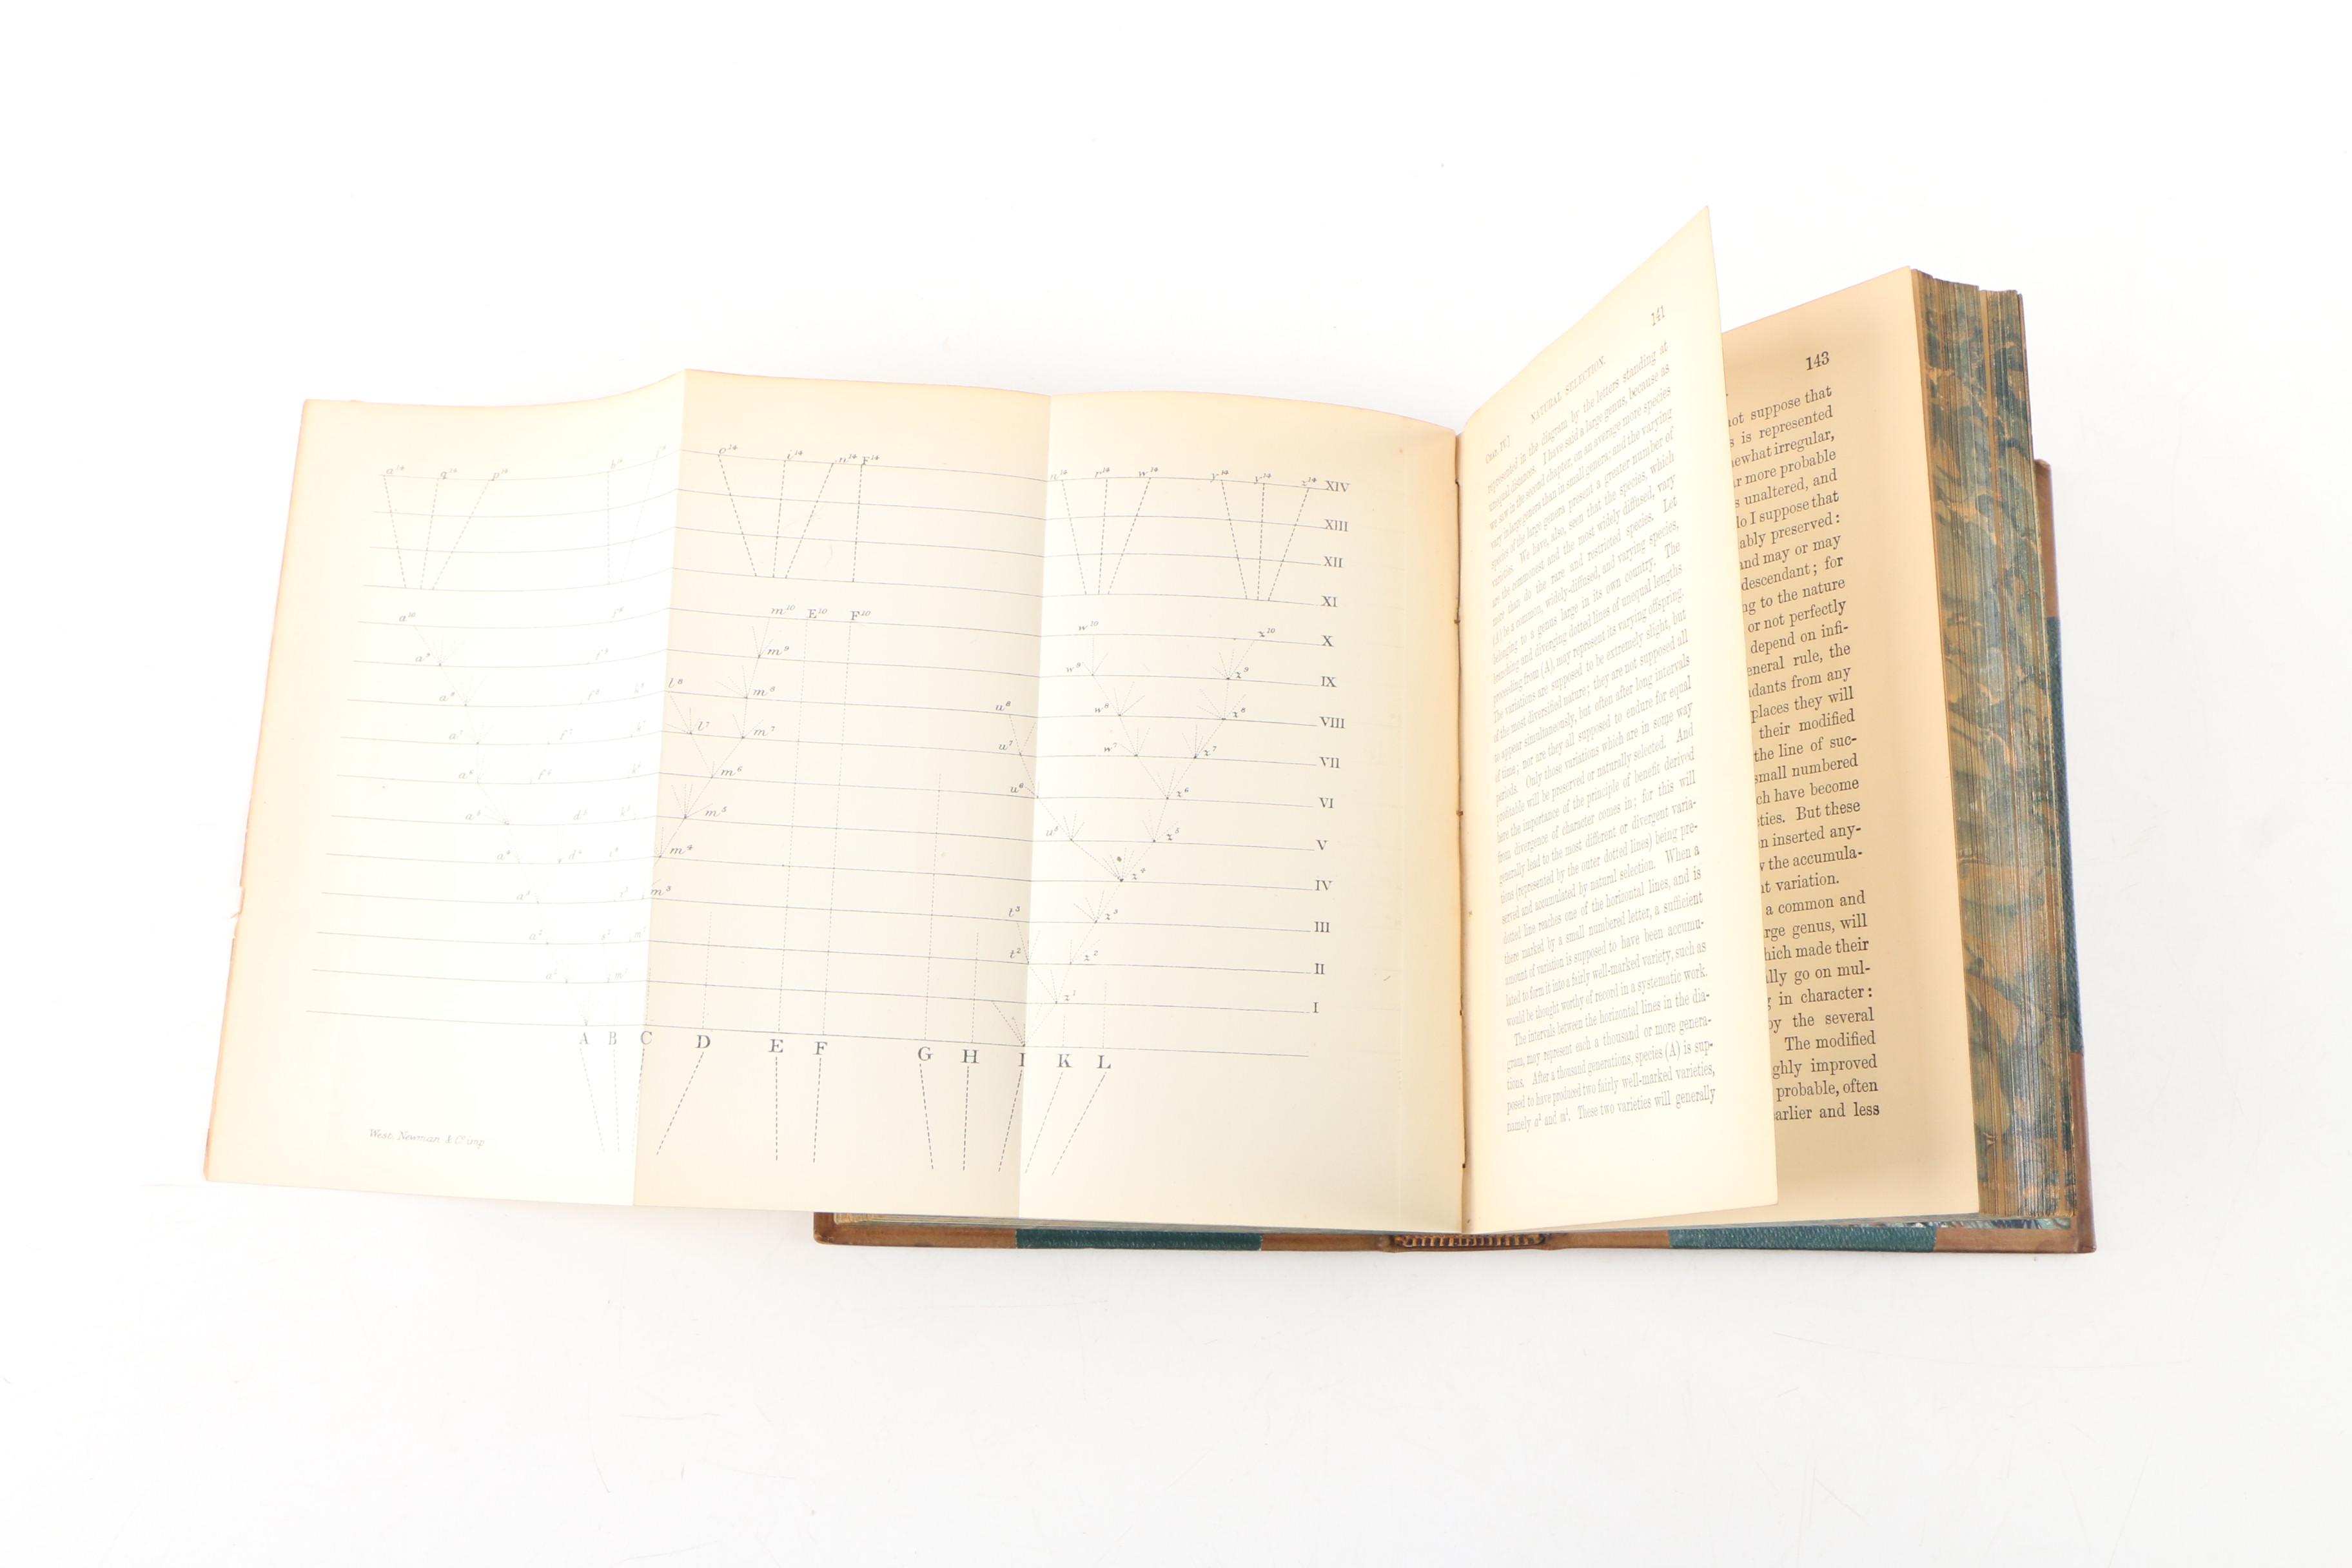 a¹⁴ q¹⁴ p¹⁴ b¹⁴ f¹⁴ o¹⁴ i¹⁴ n¹⁴ F¹⁴ n¹⁴ r¹⁴ w¹⁴ y¹⁴ v¹⁴ z¹⁴ XIV
XIII
XII
XI
a¹⁰ f¹⁰ m¹⁰ E¹⁰ F¹⁰ w¹⁰ z¹⁰ X
a⁹ f⁹ m⁹ w⁹ z⁹ IX
a⁸ f⁸ k⁸ l⁸ m⁸ u⁸ w⁸ z⁸ VIII
a⁷ f⁷ k⁷ l⁷ m⁷ u⁷ w⁷ z⁷ VII
a⁶ f⁶ k⁶ m⁶ u⁶ z⁶ VI
a⁵ d⁵ k⁵ m⁵ u⁵ z⁵ V
a⁴ d⁴ m⁴ z⁴ IV
a³ m³ t³ z³ III
a² s² m² t² z² II
a¹ m¹ z¹ I
A B C D E F G H I K L
West, Newman & Cº imp
CHAP. IV.] NATURAL SELECTION. 141
represented in the diagram by the letters standing at
unequal distances. I have said a large genus, because as
we saw in the second chapter, on an average more species
vary in large genera than in small genera; and the varying
species of the large genera present a greater number of
varieties. We have, also, seen that the species, which
are the commonest and the most widely diffused, vary
more than do the rare and restricted species. Let
(A) be a common, widely-diffused, and varying species,
belonging to a genus large in its own country. The
branching and diverging dotted lines of unequal lengths
proceeding from (A), may represent its varying offspring.
The variations are supposed to be extremely slight, but
of the most diversified nature; they are not supposed all
to appear simultaneously, but often after long intervals
of time; nor are they all supposed to endure for equal
periods. Only those variations which are in some way
profitable will be preserved or naturally selected. And
here the importance of the principle of benefit derived
from divergence of character comes in; for this will
generally lead to the most different or divergent varia-
tions (represented by the outer dotted lines) being pre-
served and accumulated by natural selection. When a
dotted line reaches one of the horizontal lines, and is
there marked by a small numbered letter, a sufficient
amount of variation is supposed to have been accumu-
lated to form it into a fairly well-marked variety, such as
would be thought worthy of record in a systematic work.
The intervals between the horizontal lines in the dia-
gram, may represent each a thousand or more genera-
tions. After a thousand generations, species (A) is sup-
posed to have produced two fairly well-marked varieties,
namely a¹ and m¹. These two varieties will generally
143
not suppose that
is represented
ewhat irregular,
r more probable
s unaltered, and
do I suppose that
ably preserved:
and may or may
descendant; for
ng to the nature
or not perfectly
depend on infi-
eneral rule, the
dants from any
places they will
their modified
the line of suc-
small numbered
ch have become
ties. But these
n inserted any-
the accumula-
t variation.
a common and
rge genus, will
hich made their
lly go on mul-
in character:
by the several
The modified
ghly improved
probable, often
earlier and less